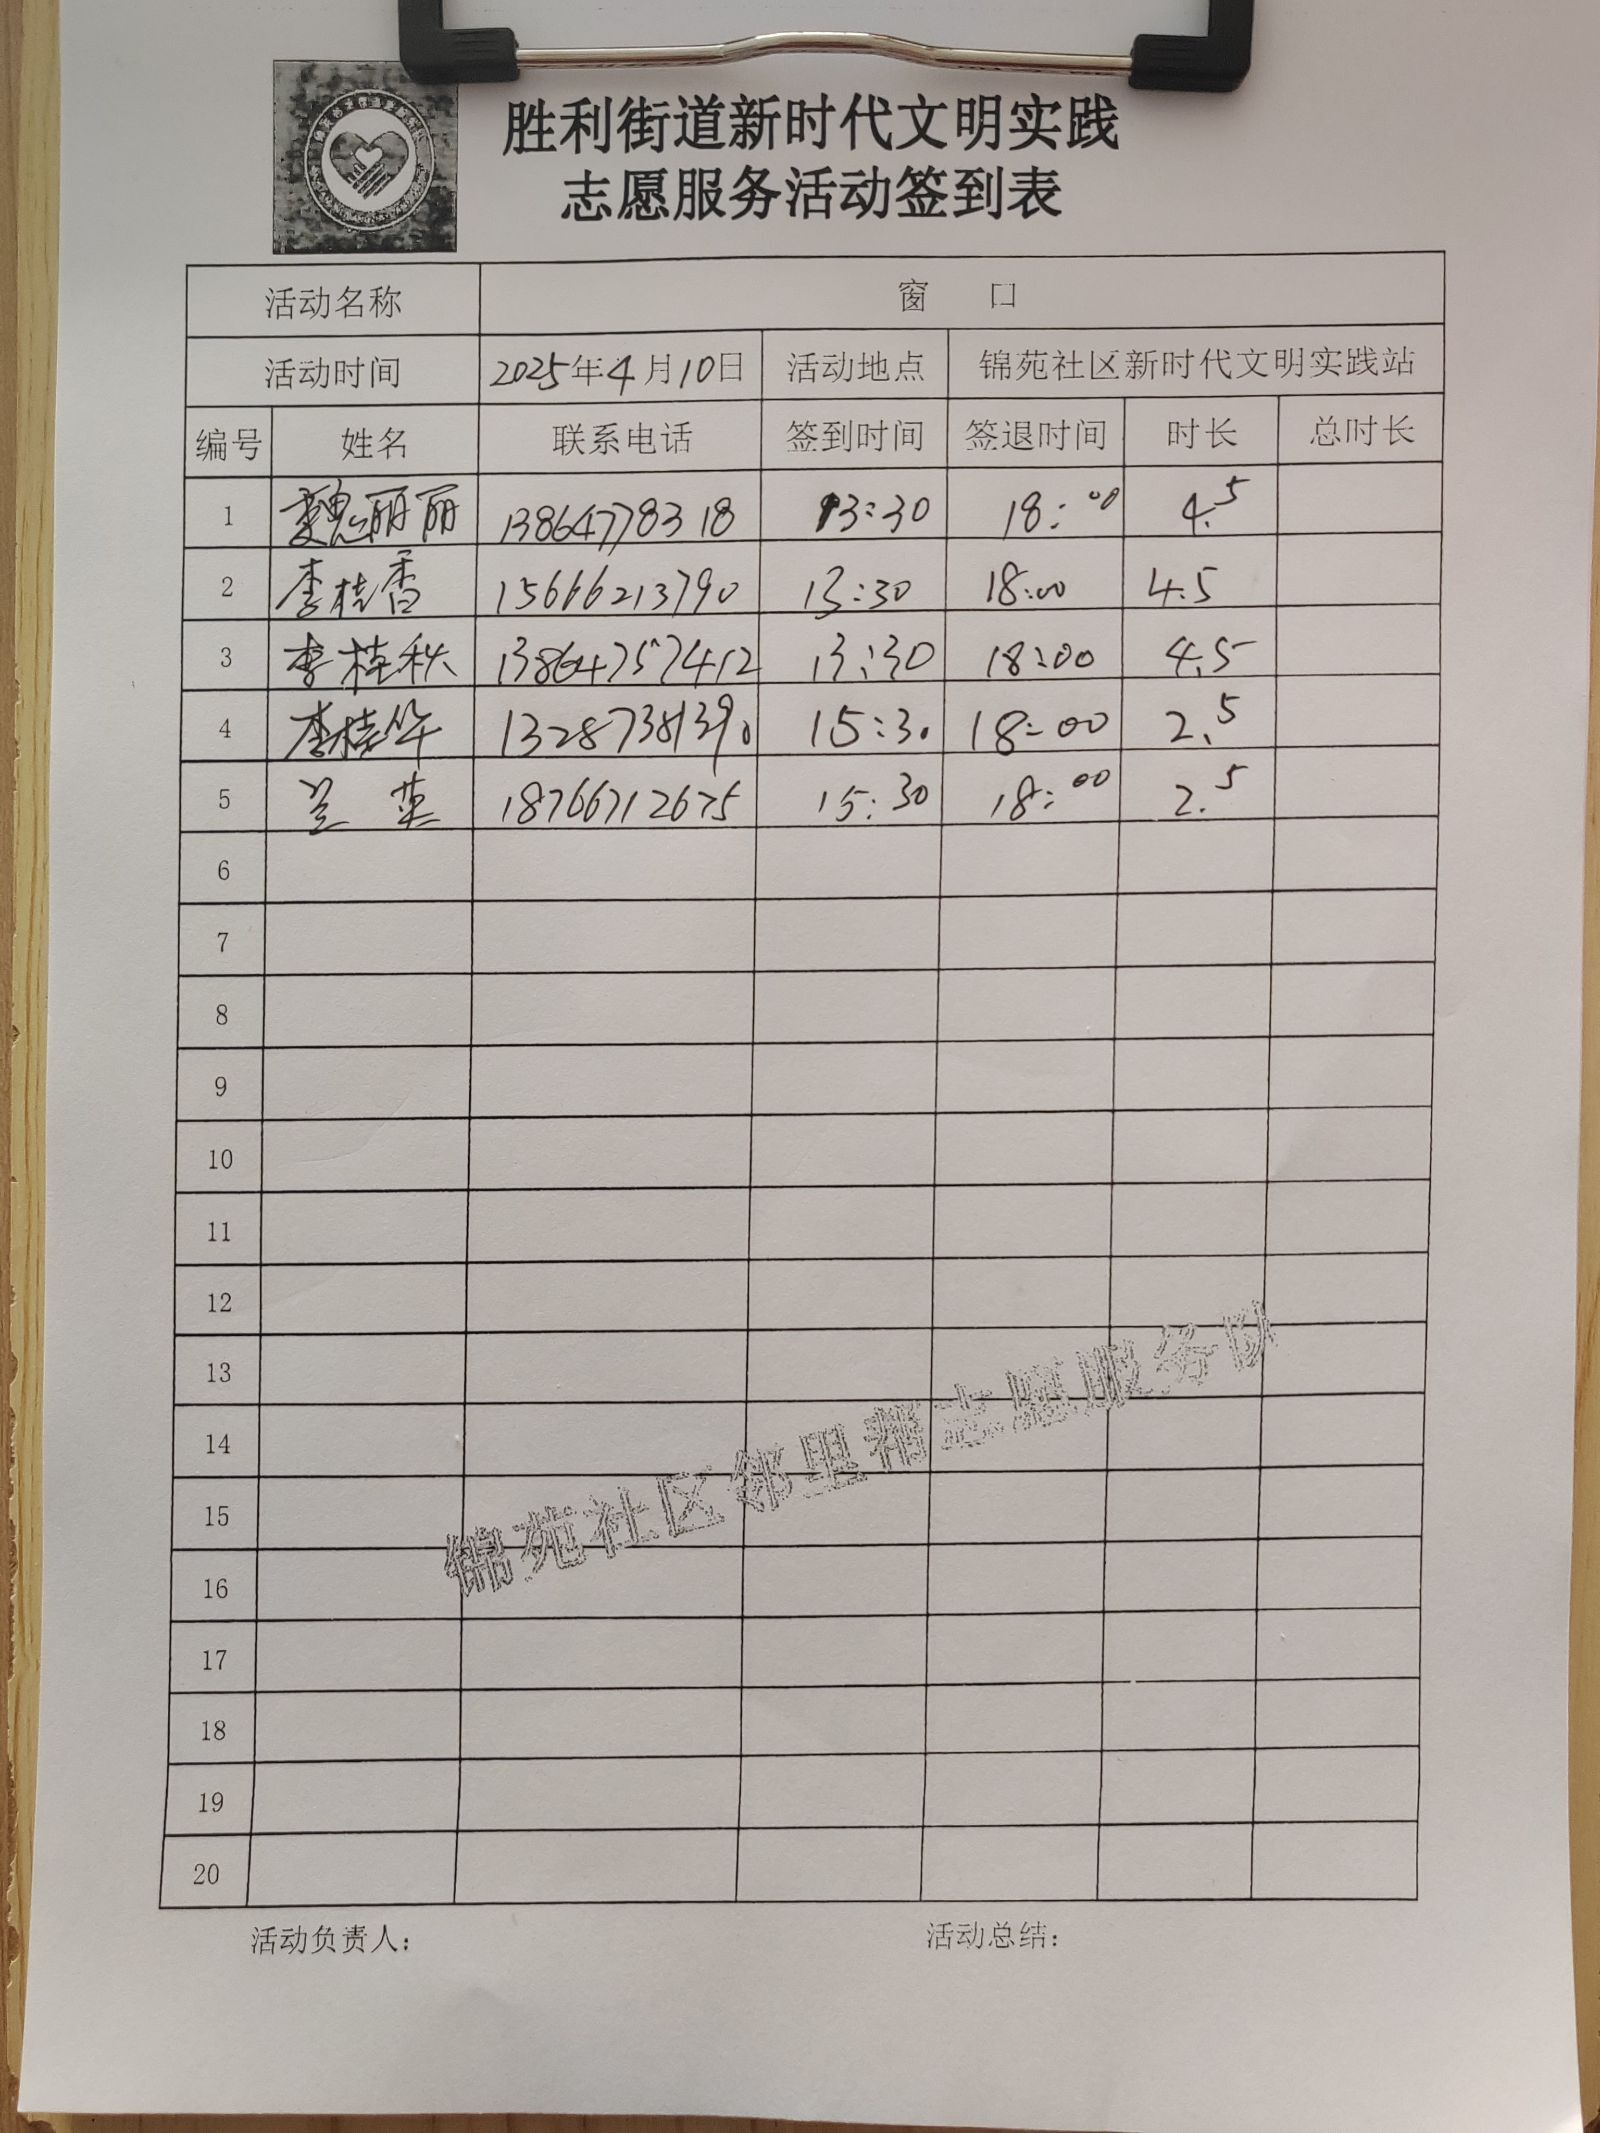 胜利街道新时代文明实践
志愿服务活动签到表
活动名称 窗 口
活动时间 2025年4月10日 活动地点 锦苑社区新时代文明实践站
编号 姓名 联系电话 签到时间 签退时间 时长 总时长
1 魏丽丽 13864778318 13:30 18:00 4.5
2 李桂香 15666213790 13:30 18:00 4.5
3 李桂秋 13864757412 13:30 18:00 4.5
4 李桂华 13287381390 15:30 18:00 2.5
5 兰英 18766712675 15:30 18:00 2.5
6
7
8
9
10
11
12
13
14
15
16
17
18
19
20
锦苑社区邻里帮志愿服务队
活动负责人: 活动总结: